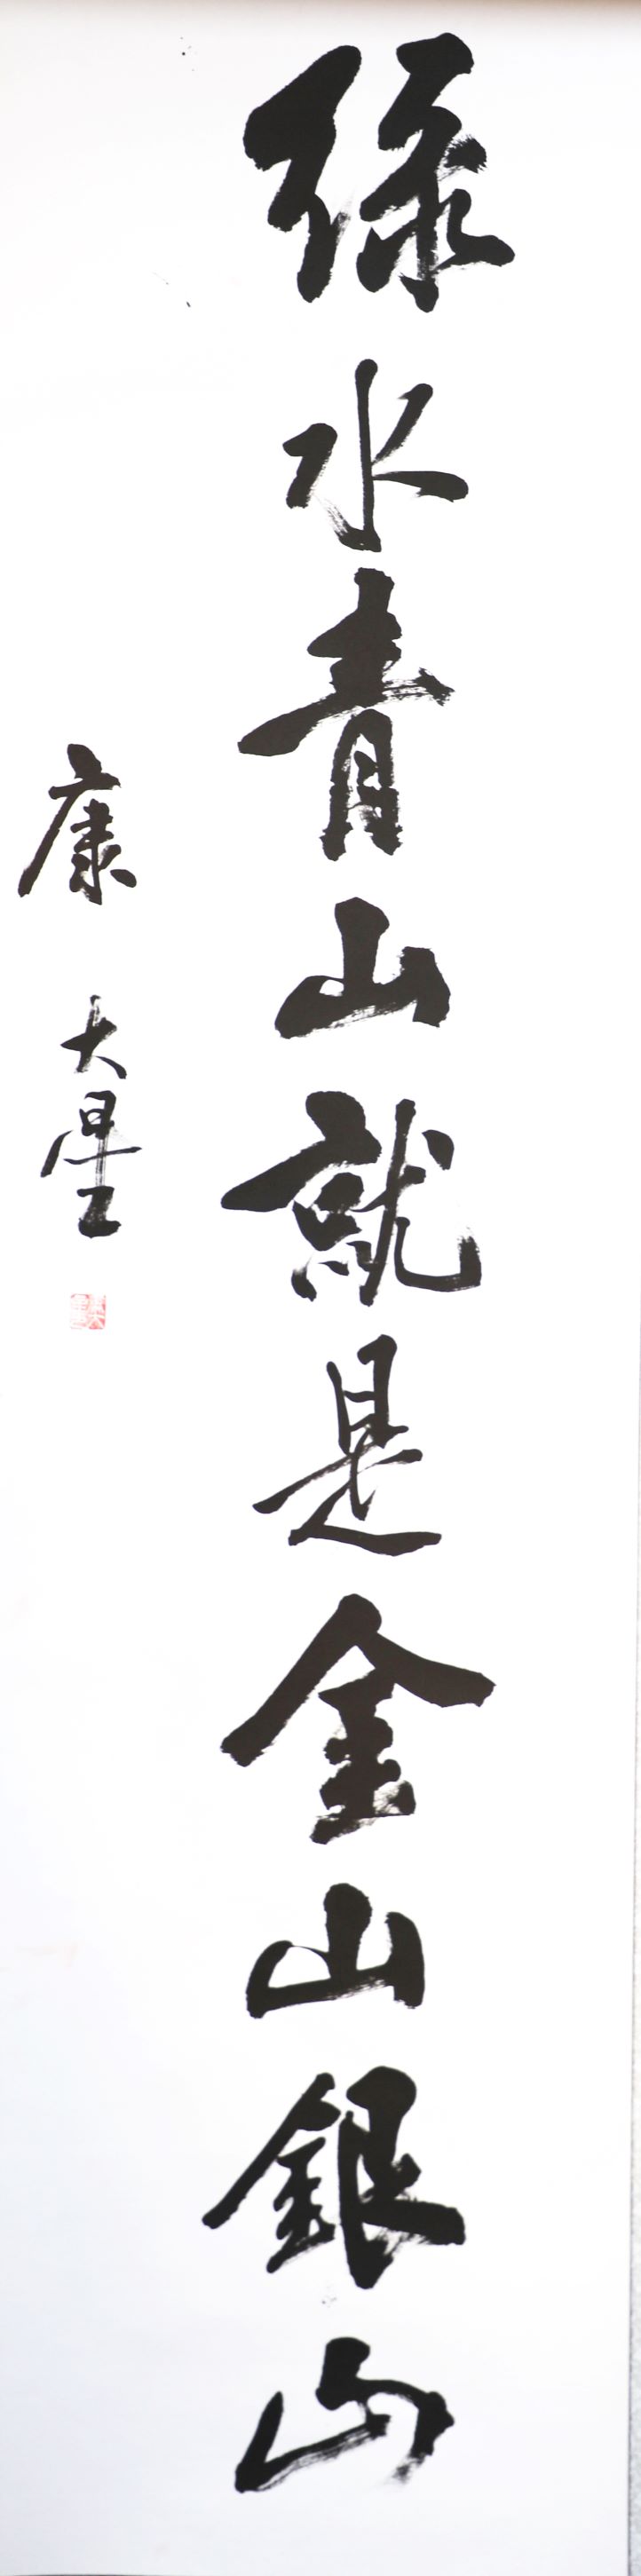 綠水青山就是金山銀山
康大星